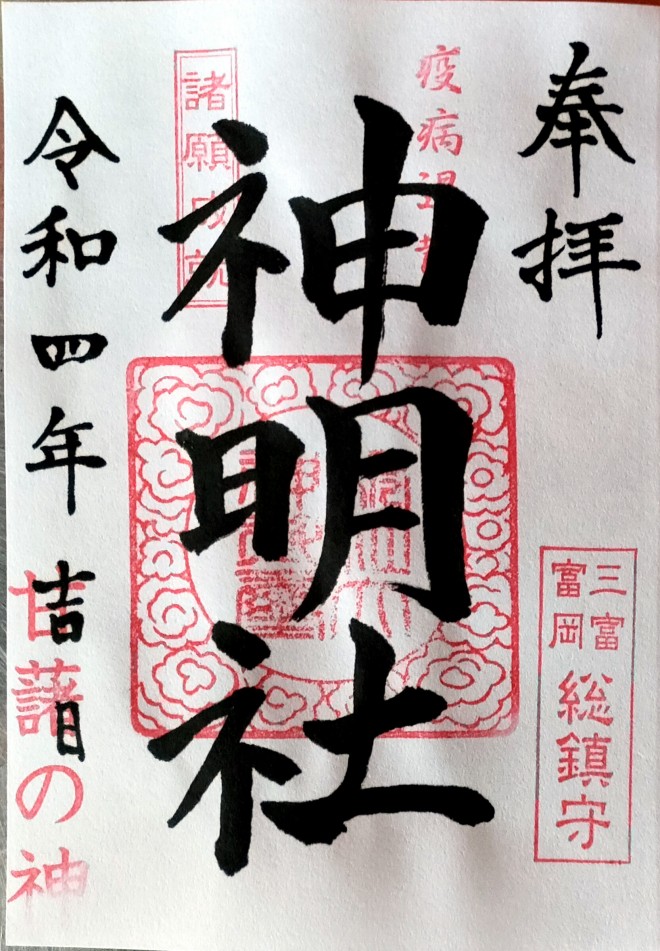 奉拝
三富
富岡
総鎮守
疫病退散
神明社
諸願成就
令和四年吉日
甘藷の神